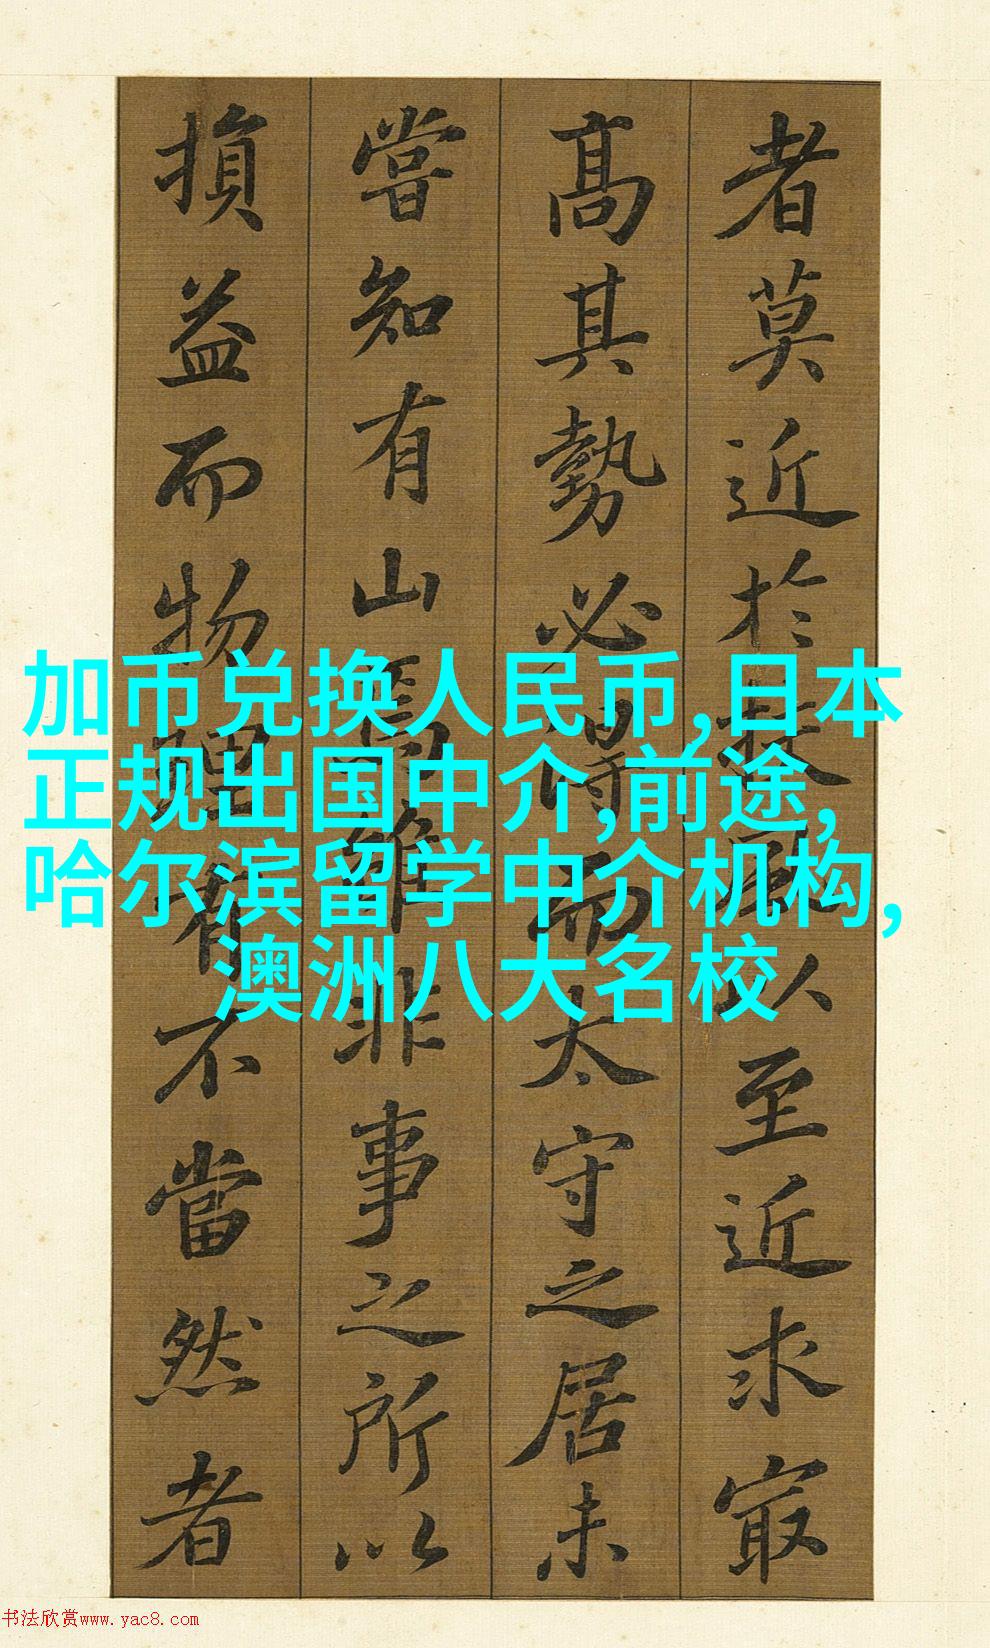 者莫近於扶風以至近求㝡
髙其勢必得而太守之居未
嘗知有山焉雖非事之所以
損益而物理有不當然者
加币兑换人民币,日本
正规出国中介,前途,
哈尔滨留学中介机构,
澳洲八大名校
书法欣赏www.yac8.com